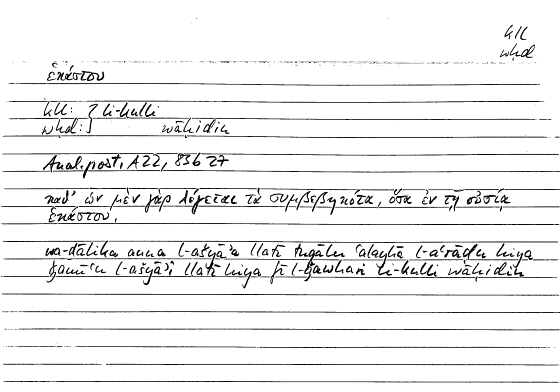 kll
wḥd
ἑκάστου
kll: } li-kulli
wḥd: } wāḥidin
Anal. post. A 22, 83b 27
καθ' ὧν μὲν γὰρ λέγεται τὰ συμβεβηκότα, ὅσα ἐν τῇ οὐσίᾳ
ἑκάστου.
wa-ḏālika anna l-ašyāʾa llatī tuqālu ʿalayhā l-aʿrāḍu hiya
ǧamīʿu l-ašyāʾi llatī hiya fī l-ǧawhari li-kulli wāḥidin